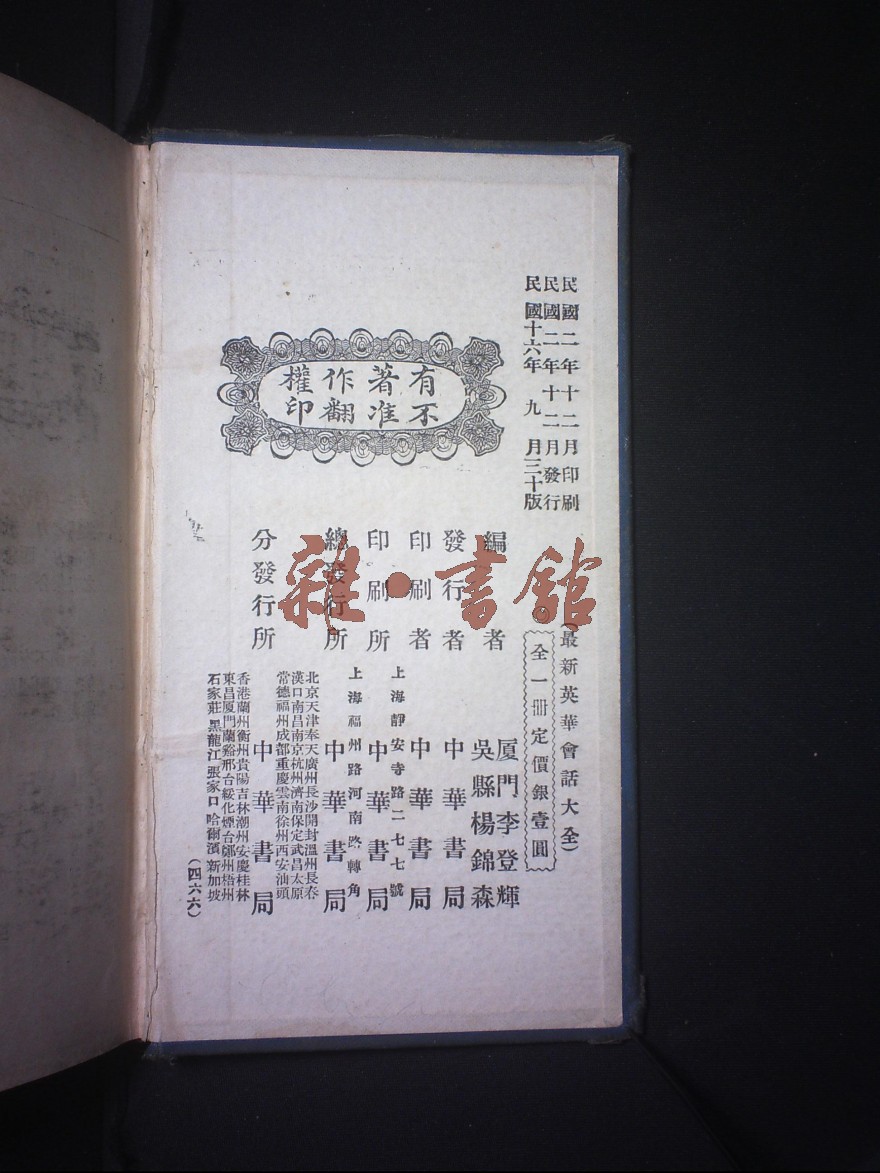 民國二年十二月印刷
民國二年十二月發行
民國十六年九月三十版
有著作權
不准翻印
(最新英華會話大全)
全一冊定價銀壹圓
編者
厦門李登輝
吳縣楊錦森
發行者 中華書局
印刷者 中華書局
上海靜安寺路二七七號
印刷所 中華書局
上海福州路河南路轉角
總發行所 中華書局
北京天津奉天廣州長沙開封溫州長春
漢口南昌南京杭州濟南保定武昌太原
常德福州成都重慶雲南徐州西安汕頭
分發行所 中華書局
香港蘭州衡州貴陽吉林潮州安慶桂林
東昌厦門蘭谿邢台綏化煙台鄭州梧州
石家莊黑龍江張家口哈爾濱新加坡
(四六六)
雜·書館